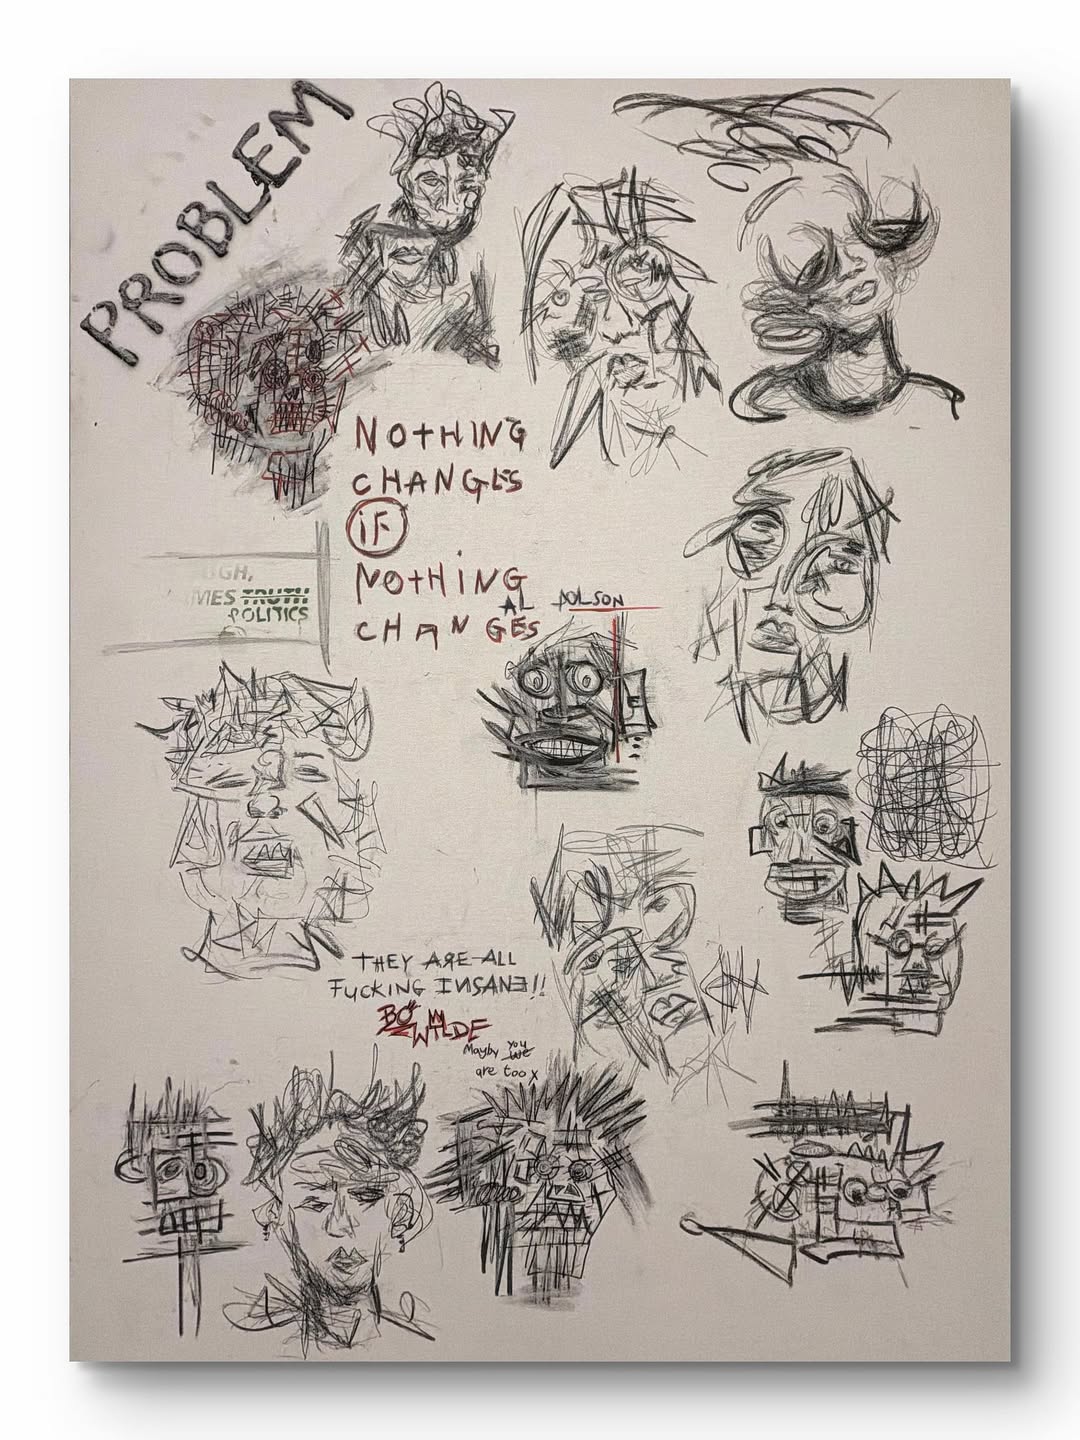 PROBLEM
NOTHING
CHANGES
iF
NOTHING
CHANGES
AL POLSON
UGH,
MES TRUTH
POLITICS
THEY ARE ALL
FUCKING INSANE!!
BO WILDE
Mayby you we
are too x